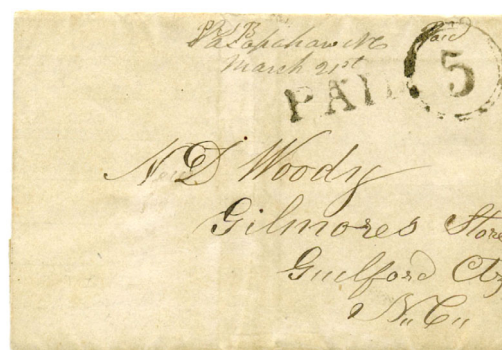 Saxapahaw NC Paid
March 21st
PAID 5
N D Woody
Gilmores Store
Guilford Cty
N.C.